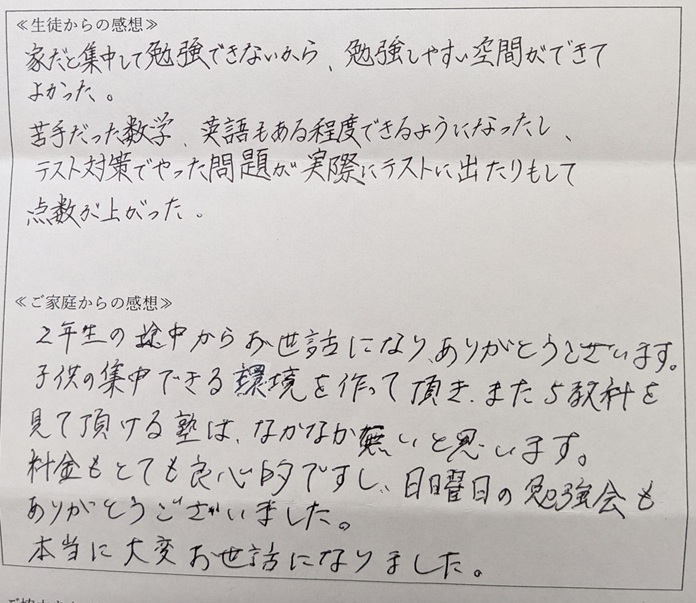 ≪生徒からの感想≫
家だと集中して勉強できないから、勉強しやすい空間ができて
よかった。
苦手だった数学、英語もある程度できるようになったし、
テスト対策でやった問題が実際にテストに出たりもして
点数が上がった。
≪ご家庭からの感想≫
2年生の途中からお世話になり、ありがとうございます。
子供の集中できる環境を作って頂き、また5教科を
見て頂ける塾は、なかなか無いと思います。
料金もとても良心的ですし、日曜日の勉強会も
ありがとうございました。
本当に大変お世話になりました。